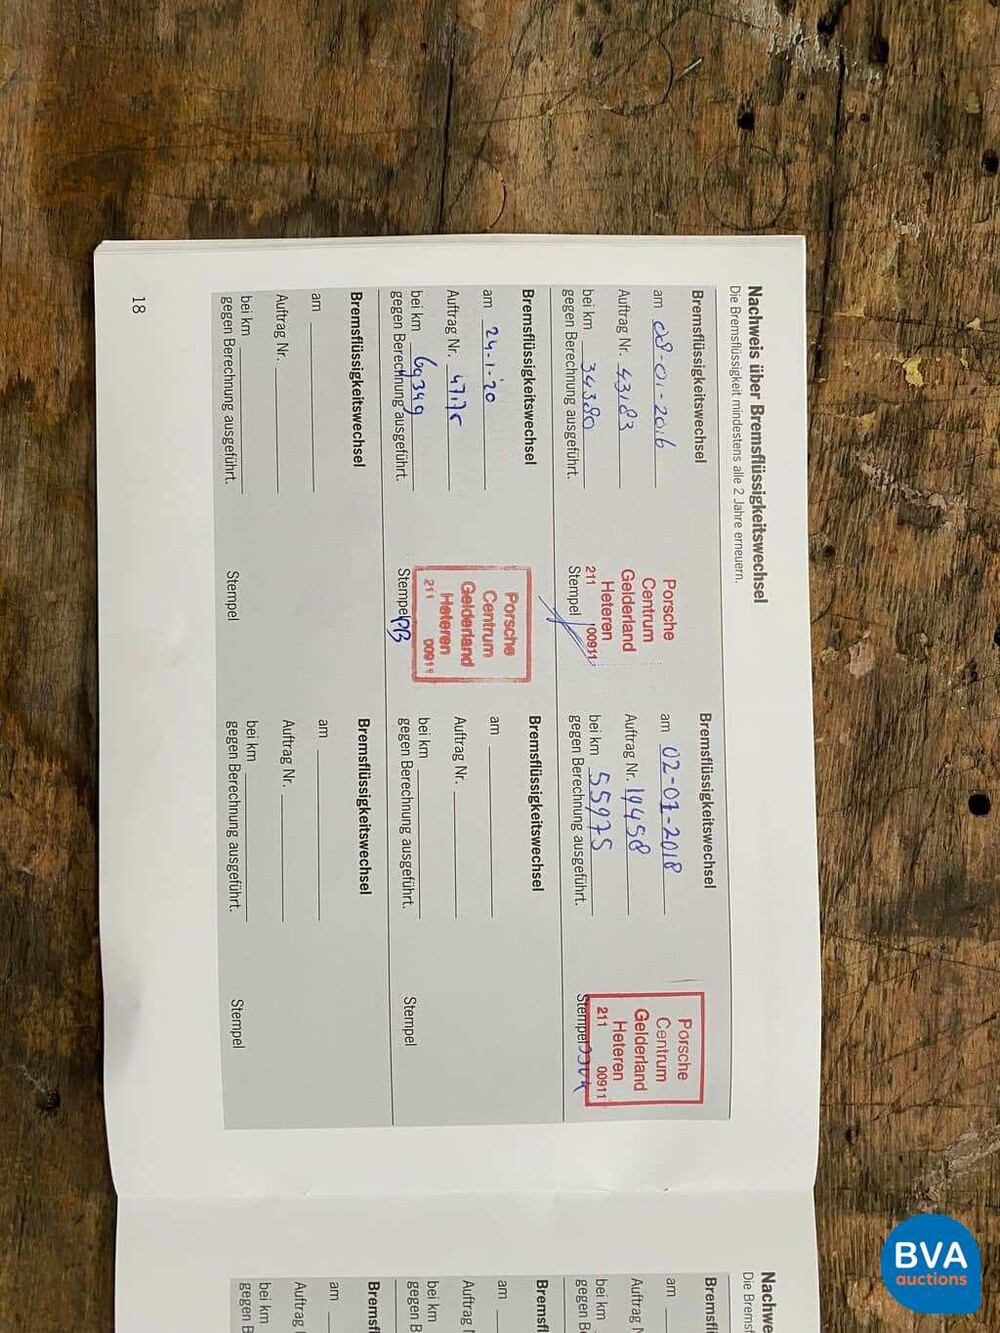 Nachweis über Bremsflüssigkeitswechsel
Die Bremsflüssigkeit mindestens alle 2 Jahre erneuern.
Bremsflüssigkeitswechsel
am 08-01-2016
Auftrag Nr. 43183
bei km 34380
gegen Berechnung ausgeführt.
Porsche
Centrum
Gelderland
Heteren
211 00911
Stempel
Bremsflüssigkeitswechsel
am 02-01-2018
Auftrag Nr. 19458
bei km 55975
gegen Berechnung ausgeführt.
Porsche
Centrum
Gelderland
Heteren
211 00911
Stempel
Bremsflüssigkeitswechsel
am 24-1-'20
Auftrag Nr.
bei km 69349
gegen Berechnung ausgeführt.
Porsche
Centrum
Gelderland
Heteren
211 00911
Stempel PB
Bremsflüssigkeitswechsel
am
Auftrag Nr.
bei km
gegen Berechnung ausgeführt.
Stempel
Bremsflüssigkeitswechsel
am
Auftrag Nr.
bei km
gegen Berechnung ausgeführt.
Stempel
Bremsflüssigkeitswechsel
am
Auftrag Nr.
bei km
gegen Berechnung ausgeführt.
Stempel
18
Nachwe
Die Bremsf
Bremsfl
am
Auftrag N
bei km
gegen B
Bremsfl
am
Auftrag N
bei km
gegen B
Bremsfl
am
Auftrag
bei km
gegen B
BVA
auctions